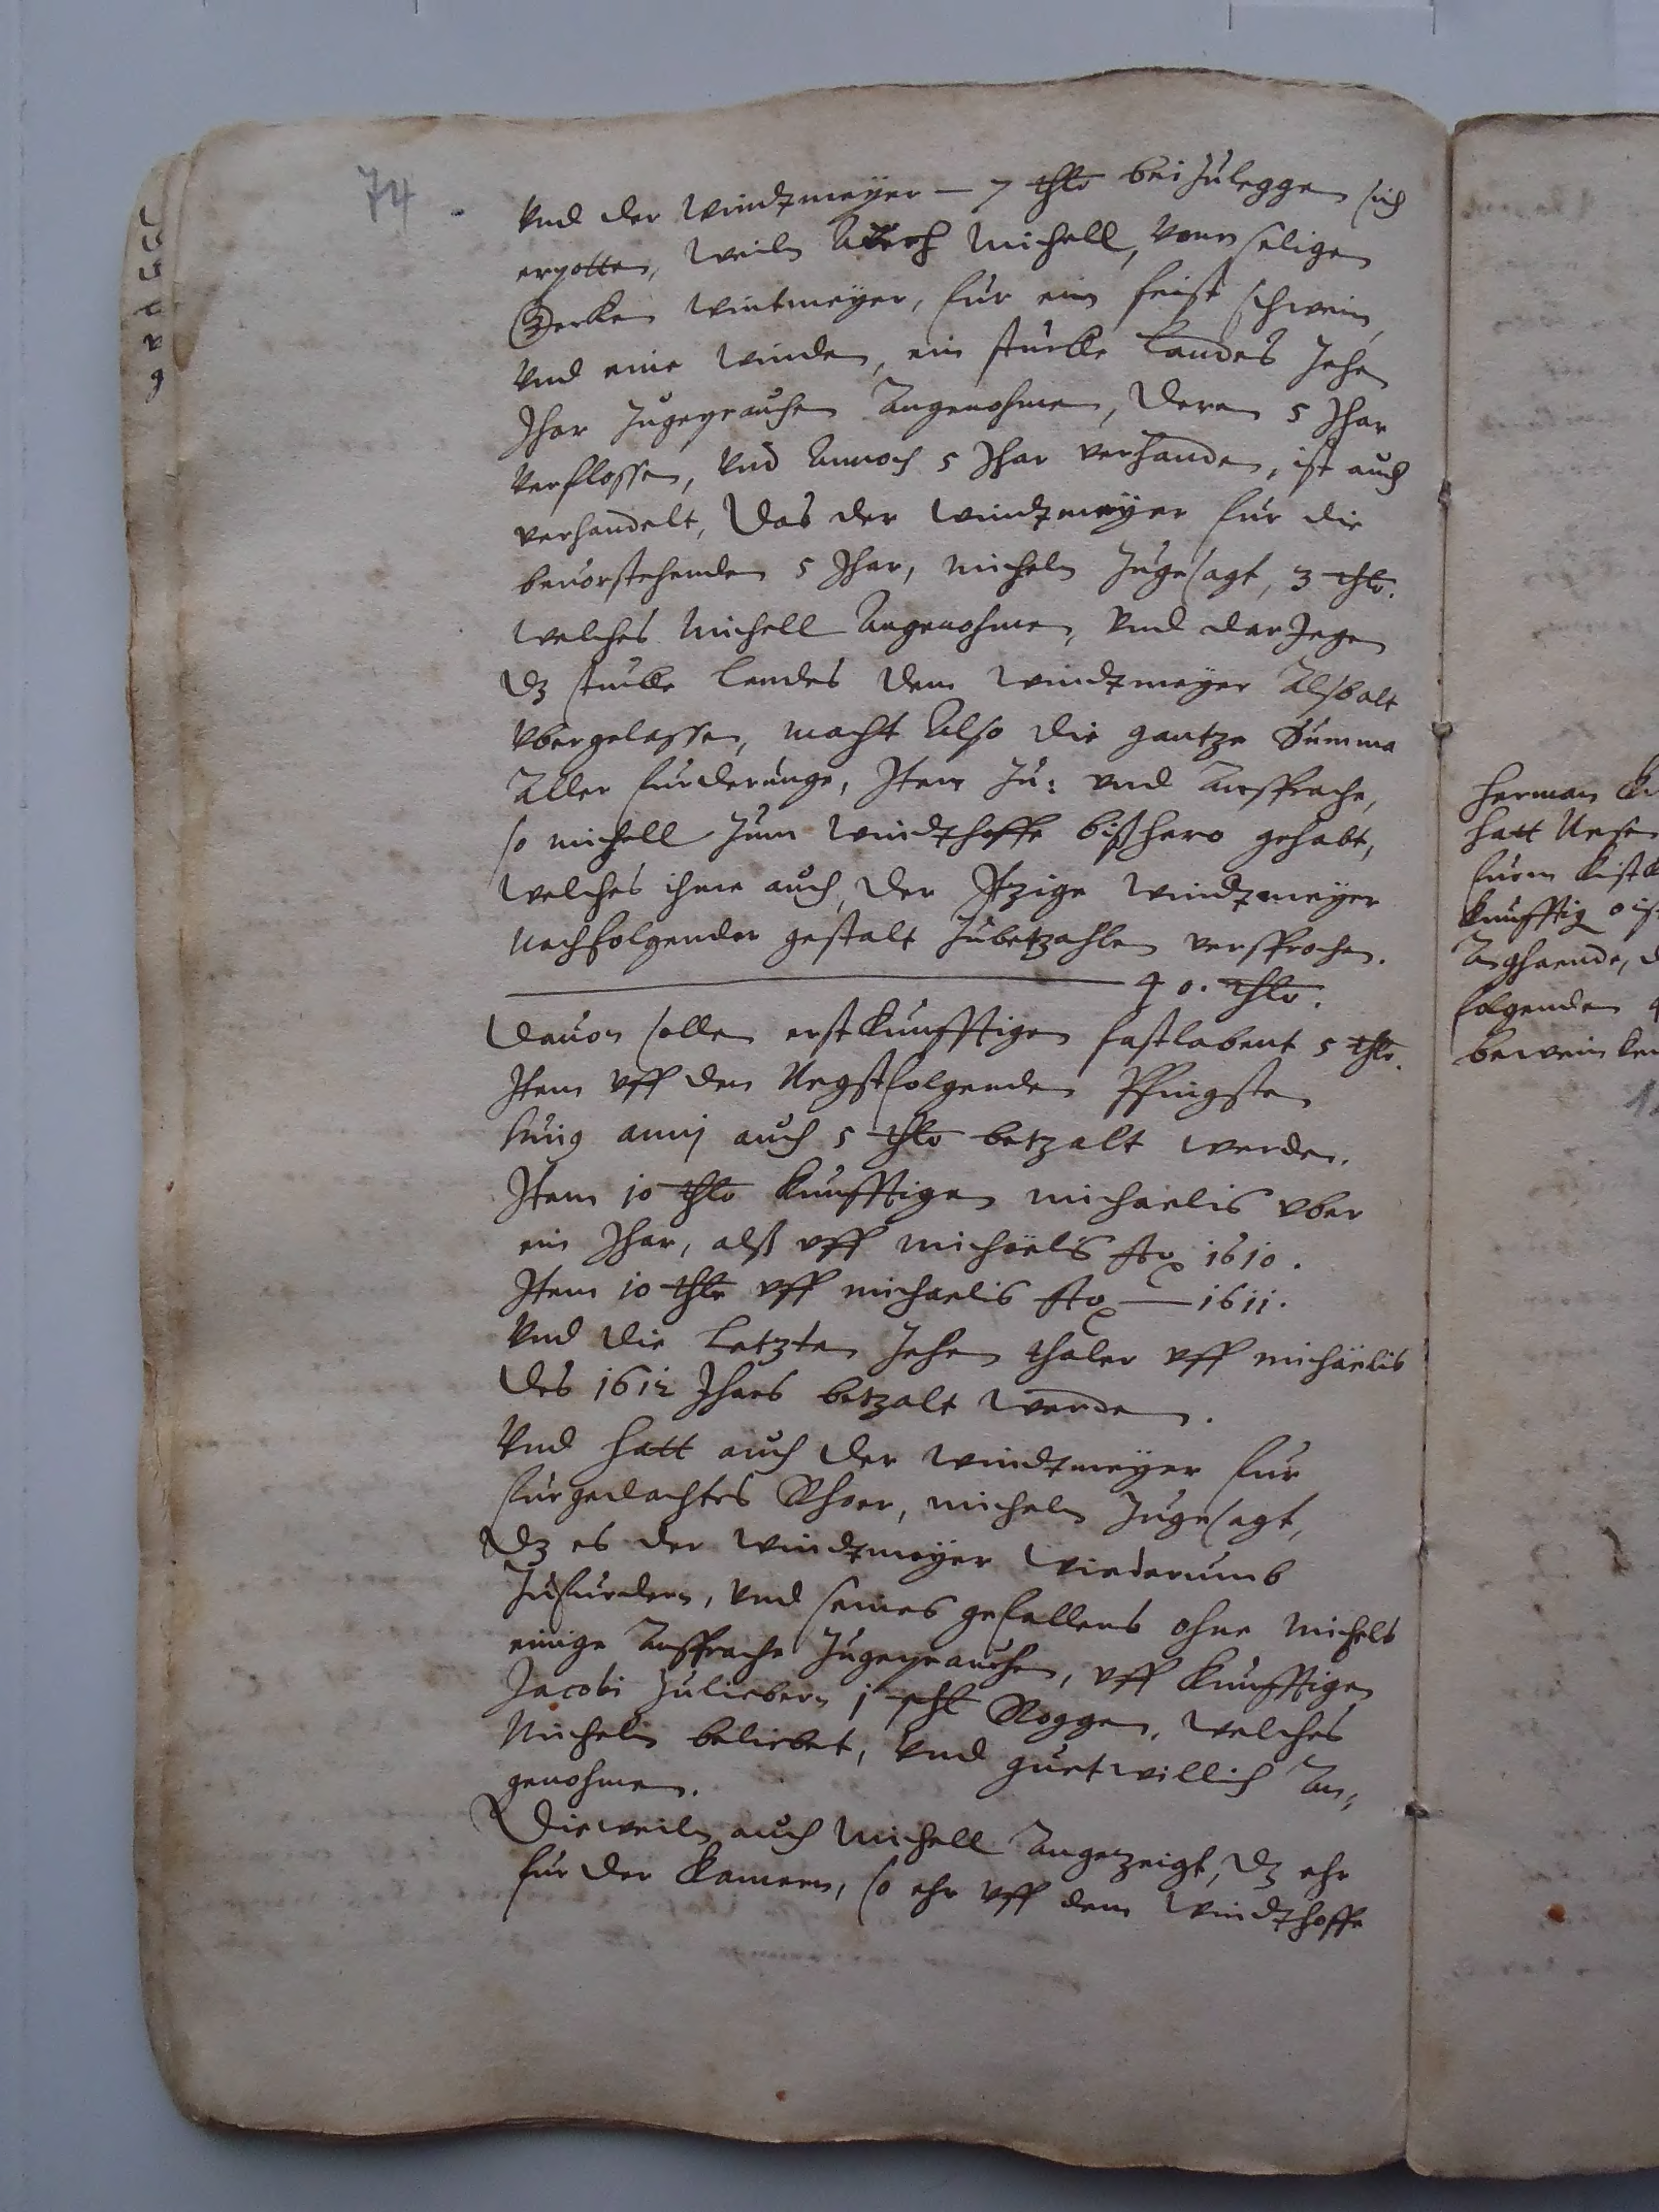 74
Vnd der Windtmeÿer — 7 thlr bei zuleggen sich
erpotten, weiln Auch Michell, vonn seligen
Gerken Wintmeÿer, fur ein feist schwein,
Vnd eine Winden, ein stucke Landes zehen
Jhar zugeprauchen Angenohmen, Deren 5 Jhar
Verflossen, Vnd Annoch 5 Jhar verhanden, ist auch
verhandelt, Das der Windtmeÿer fur die
beuorstehenden 5 Jhar, Micheln zugesagt, 3 thlr.
Welches Michell Angenohmen, Vnd darJegen
Dz stucke Landes dem Windtmeÿer Alsbalt
Vbergelassen, macht Also die gantze Summa
Aller furderunge, Item Zu: vnd Ansprache,
so Michell zum Windthoffe bißhero gehabt,
Welches ihme auch, der Itzige Windtmeÿer
Nachfolgender gestalt zubetzahlen versprochen.
40. thlr.
Dauon sollen erstkunfftigen fastlabent 5 thlr.
Item vff den Negstfolgenden Pfingsten
huius anni auch 5 thlr betzalt werden.
Item 10 thlr kunfftigen Michaelis vber
ein Jhar, alß vff Michaelis Ao 1610.
Item 10 thlr vff Michaelis Ao — 1611.
Vnd die Letzten zehen thaler vff Michaelis
des 1612 Jhars betzalt werden.
Vnd hatt auch der Windtmeÿer fur
furgedachtes Rhoer, Micheln zugesagt,
Dz es der Windtmeÿer wiederumb
zufurdern, Vnd seines gefallens ohne Michels
einige Ansprache zugeprauchen, vff kunfftigen
Jacobi zuliebern 1 schl Roggen, Welches
Micheln beliebet, Vnd guetwillich An,
genohmen.
Dieweiln auch Michell Angezeigt, Dz ehr
fur der Kamern, so ehr vff dem Windthoffe
Herman
hatt
kunfftig
folgenden